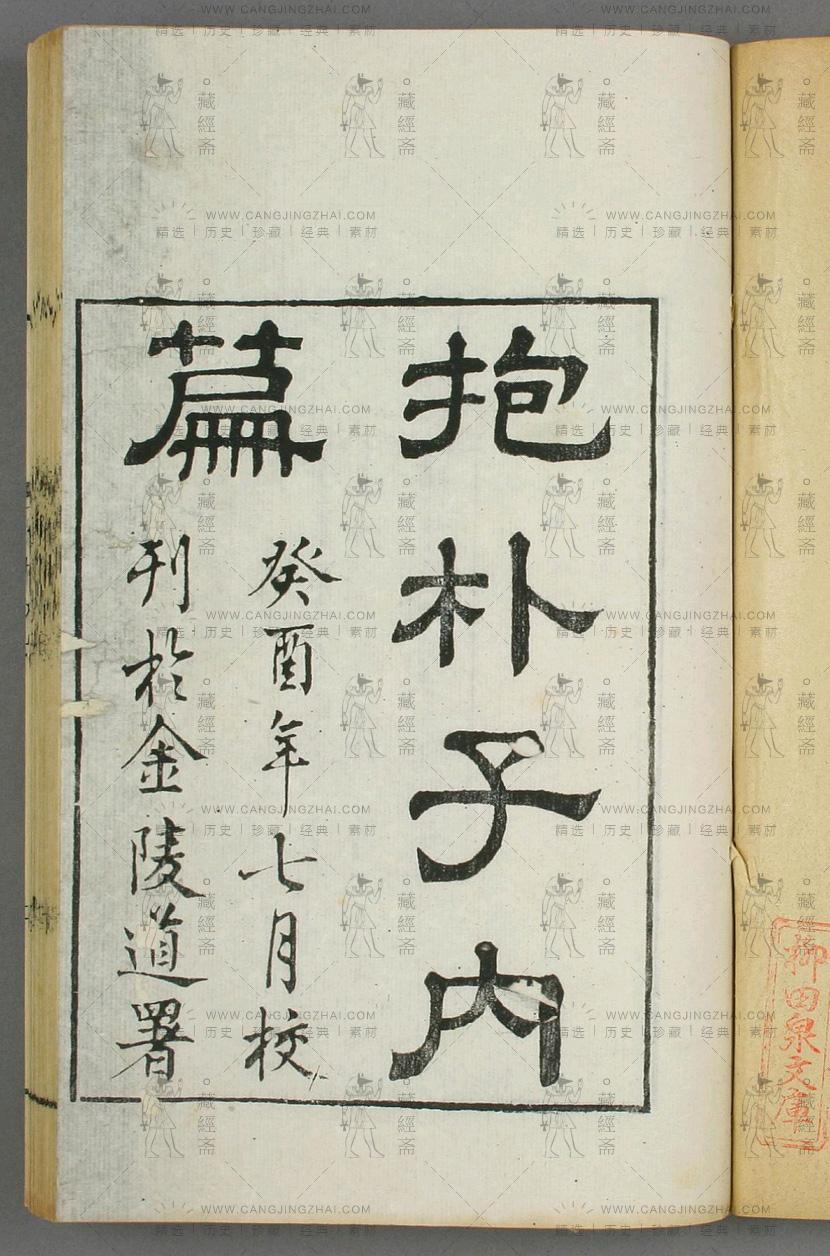 抱朴子内
篇
癸酉年七月校
刊於金陵道署
柳田泉文庫
WWW.CANGJINGZHAI.COM
精选 | 历史 | 珍藏 | 经典 | 素材
藏經斋